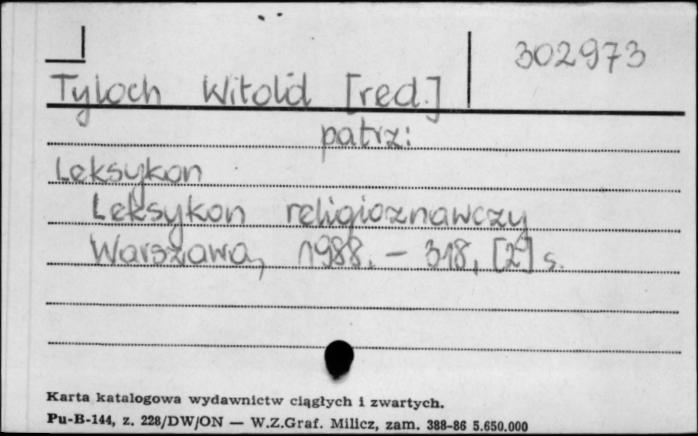 302973
Tyloch Witold [red.]
patrz:
Leksykon
Leksykon religioznawczy
Warszawa, 1988. – 318, [2] s.
Karta katalogowa wydawnictw ciągłych i zwartych.
Pu-B-144, z. 228/DW/ON — W.Z.Graf. Milicz, zam. 388-86 5.650.000